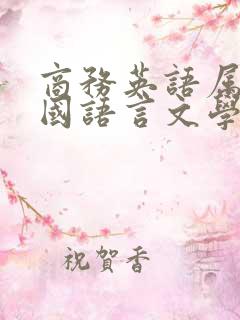 商务英語属
國語言文學
祝賀香